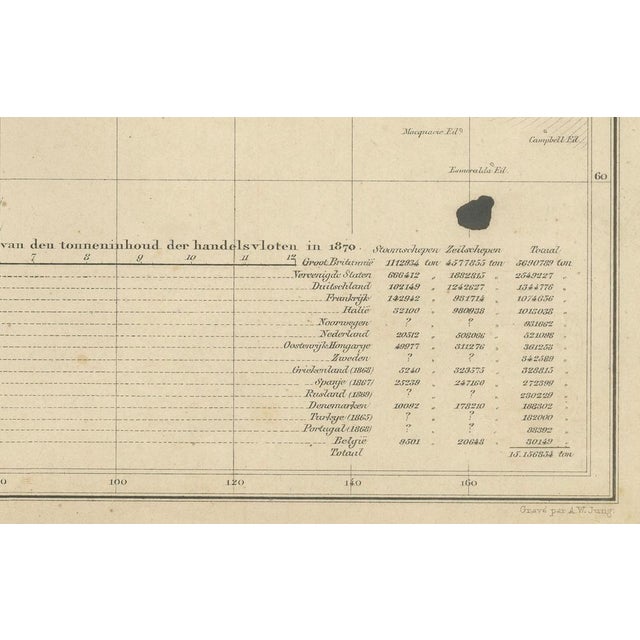 Macquarie Eil.
Campbell Eil.
Esmeralda Eil.
60
van den tonneninhoud der handelsvloten in 1870. Stoomschepen Zeilschepen Totaal
7 8 9 10 11 12
Groot Britannië 1112934 ton 4577855 ton 5690789 ton
Vereenigde Staten 666412 „ 1882815 „ 2549227 „
Duitschland 102149 „ 1242627 „ 1344776 „
Frankrijk 142942 „ 931714 „ 1074656 „
Italië 32100 „ 980938 „ 1013038 „
Noorwegen ? „ ? „ 931662 „
Nederland 20512 „ 508086 „ 521098 „
Oostenrijk Hongarije 49977 „ 311276 „ 361253 „
Zweden ? „ ? „ 342589 „
Griekenland (1868) 5240 „ 323575 „ 328815 „
Spanje (1867) 25239 „ 247160 „ 272399 „
Rusland (1869) ? „ ? „ 230229 „
Denemarken 10092 „ 178210 „ 188302 „
Turkye (1865) ? „ ? „ 182000 „
Portugal (1868) ? „ ? „ 98392 „
België 9501 „ 20648 „ 30149 „
Totaal 15.156854 ton
100 120 140 160
Gravé par A.W. Jung.